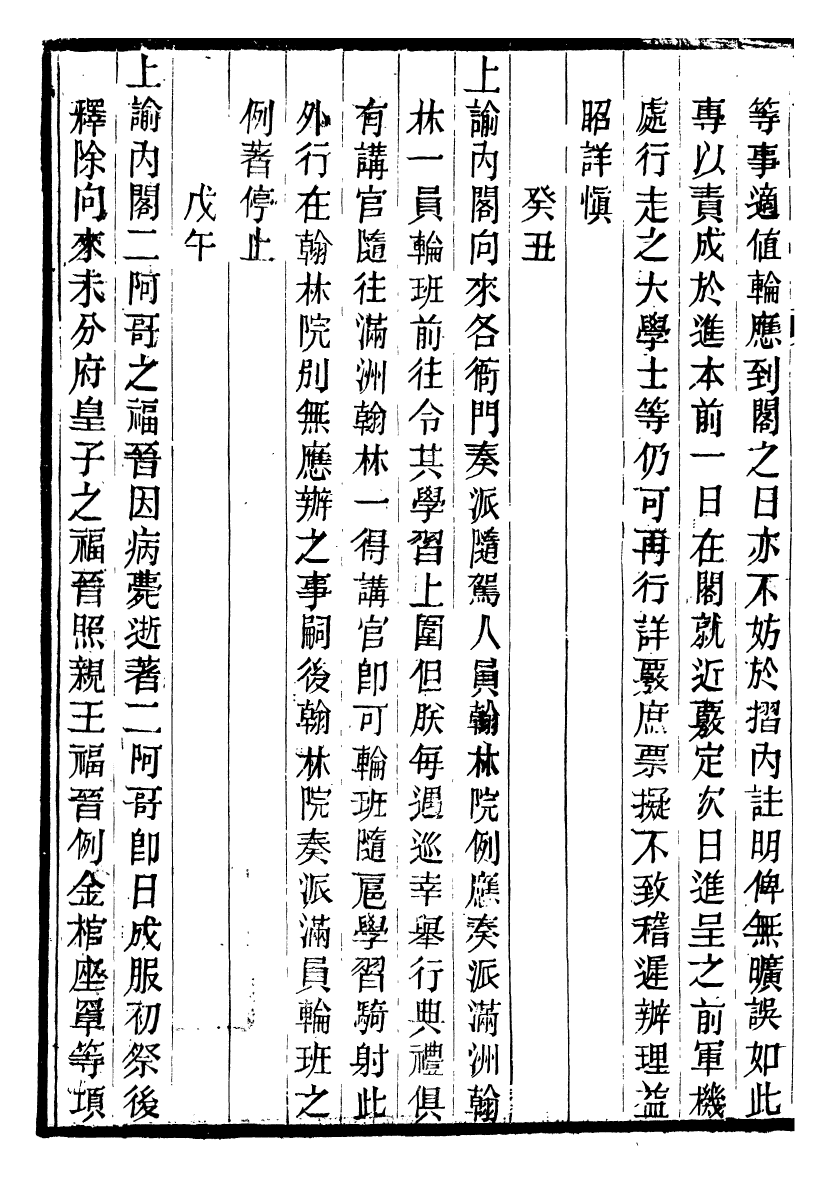 等事適值輪應到閣之日亦不妨於摺內註明俾無曠誤如此
專以責成於進本前一日在閣就近覈定次日進呈之前軍機
處行走之大學士等仍可再行詳覈庶票擬不致稽遲辦理益
昭詳慎
癸丑
上諭內閣向來各衙門奏派隨駕人員翰林院例應奏派滿洲翰
林一員輪班前往令其學習上圍但朕每遇巡幸舉行典禮俱
有講官隨往滿洲翰林一得講官卽可輪班隨扈學習騎射此
外行在翰林院別無應辦之事嗣後翰林院奏派滿員輪班之
例著停止
戊午
上諭內閣二阿哥之福晉因病薨逝著二阿哥卽日成服初祭後
釋除向來未分府皇子之福晉照親王福晉例金棺座罩等項